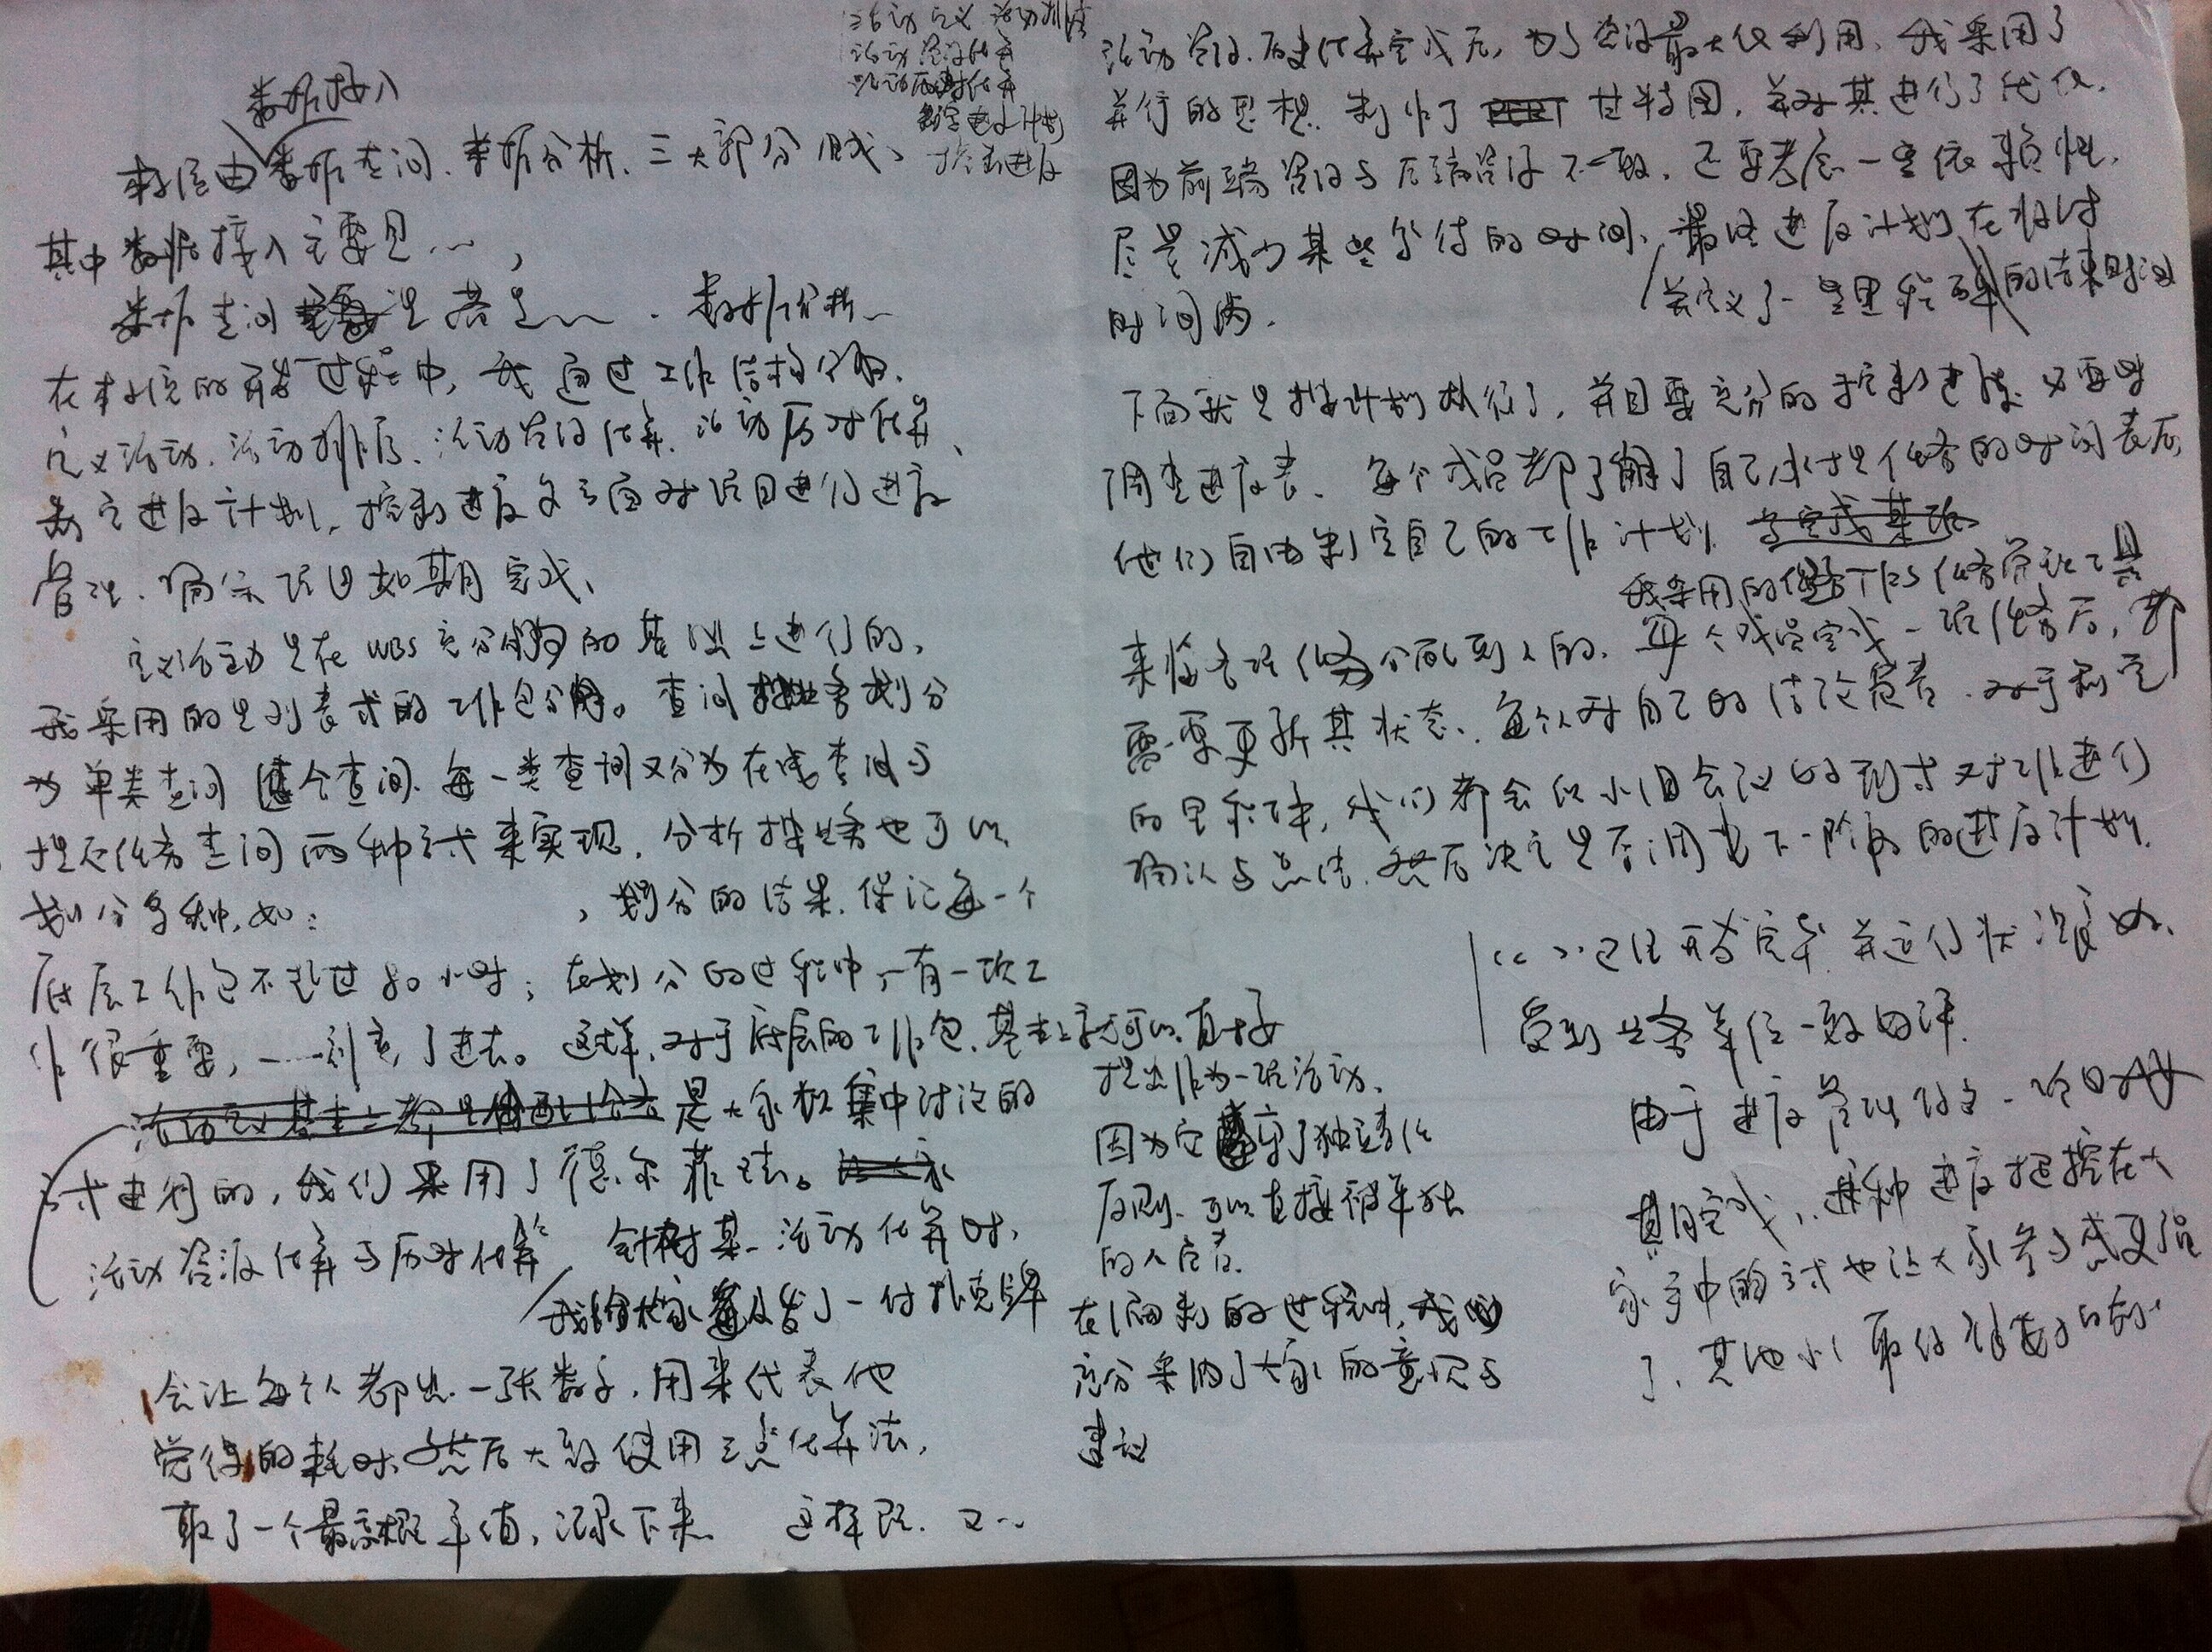 活动定义 活动排序
活动资源估算
活动历时估算
制定进度计划
控制进度
数据接入
本系统由数据查询、数据分析、三大部分组成、
其中数据接入主要是…,
数据查询 是 … . 数据分析…
在本系统的开发过程中, 我通过工作结构分解、
定义活动、活动排序、活动资源估算、活动历时估算、
制定进度计划、控制进度 方面对项目进行进度
管理、确保项目如期完成、
定义活动是在WBS充分分解的基础上进行的,
我采用的是列表式的工作包分解。查询 业务划分
为单类查询 查询、每一类查询又分为在线查询与
任务查询两种方式来实现, 分析 业务也可以
划分多种, 如:
, 划分的结果、保证每一个
底层工作包不超过80小时; 在划分的过程中, 有一项工
作很重要, …了进去。这样, 对于底层的工作包、基本上就可以直接
提出作为一项活动、
因为它 了独立责任
原则、可以直接被单独
的人负责.
在 的过程中, 我
充分采纳了大家的意见与
建议
是大家集中讨论的
方式进行的, 我们采用了德尔菲法。
活动资源估算与历时估算 针对某一活动估算时,
我给大家 发了一付扑克牌
会让每个人都出一张数字, 用来代表他
觉得的耗时、然后大致使用三点估算法,
取了一个最 概率值, 记录下来 这样既、又…
活动资源、历史估算完成后, 为了资源最大化利用、我采用了
并行的思想、制作了 甘特图, 并对其进行了优化、
因为前端资源与后端资源不一致, 还要考虑一些依赖性、
尽量减少某些等待的时间、最终进度计划在
并定义了一些里程碑的结束时间
时间内.
下面就是按计划执行了, 并且要充分的控制进度 必要时
调整进度表、每个成员都了解了自己 任务的时间表后,
他们自由制定自己的工作计划
我采用的 任务管理工具
来将各项任务分配到人的、每个成员完成一项任务后, 都
需要更新其状态、每个人对自己的结论负责、对于制定
的里程碑, 我们都会以小组会议的形式对工作进行
确认与总结、然后决定是否调整下一阶段的进度计划、
“ ”已经开发完毕 并运行状况良好、
受到业务单位一致好评.
由于进度管理得当、项目如
期完成, 这种进度把控在大
家手中的方式也让大家参与感更强
了、其他 取得很好的